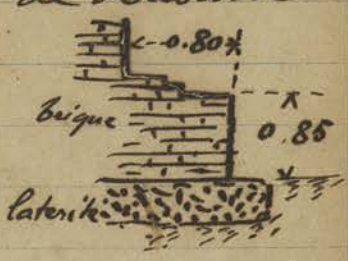 0.80
brique
0.85
laterite